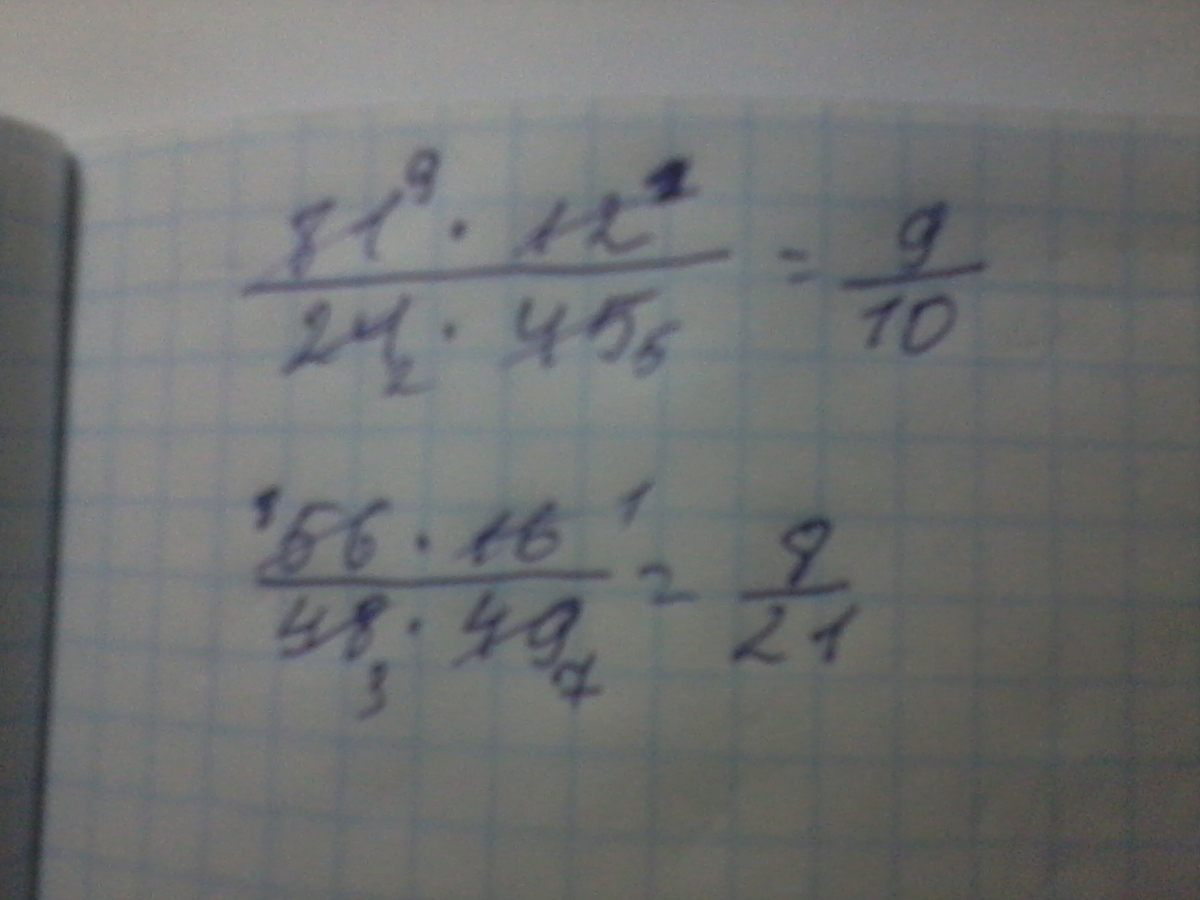 81⁹ · 12¹
24₂ · 45₅
= 9/10
⁸56 · 16¹
48₃ · 49₇
= 8/21